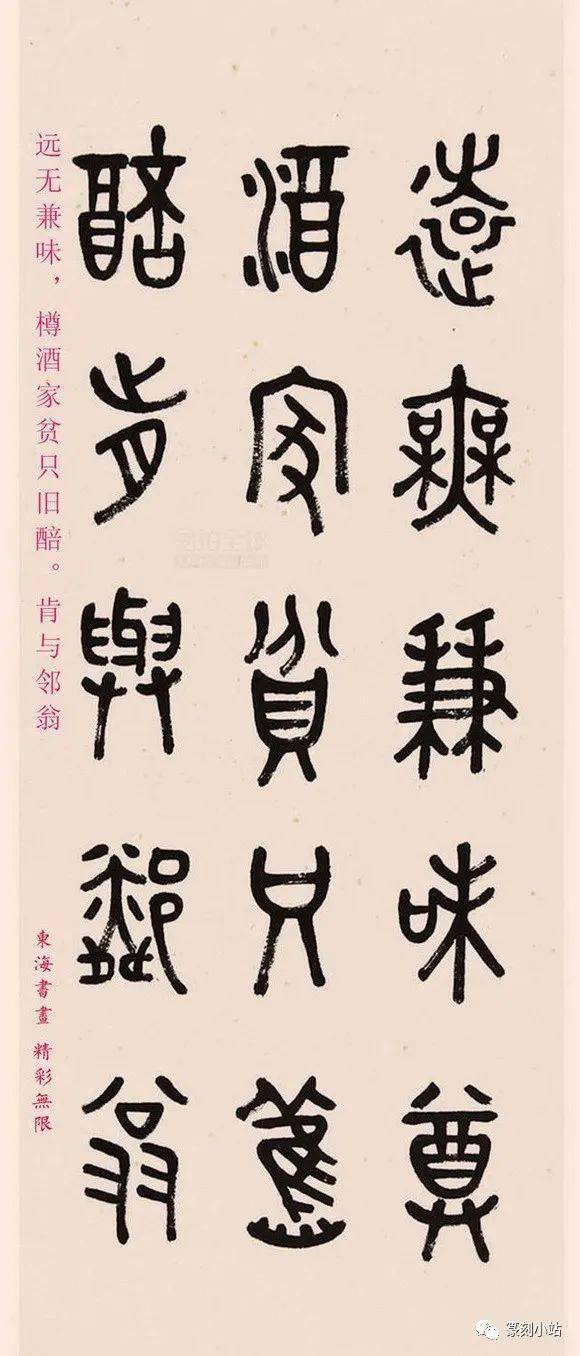 遠無兼味尊
酒家貧只舊
醅肯與鄰翁
远无兼味，樽酒家贫只旧醅。肯与邻翁
東海書畫 精彩無限
篆刻小站